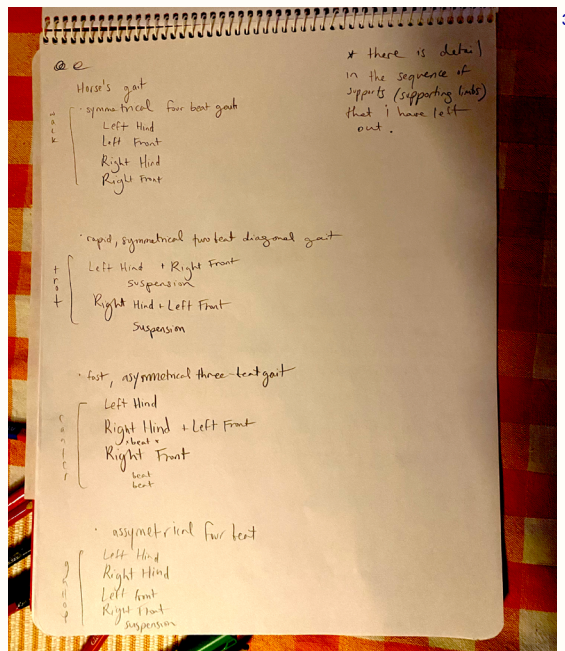 Horse's gait
· symmetrical four beat gait
walk
Left Hind
Left Front
Right Hind
Right Front
* there is detail
in the sequence of
supports (supporting limbs)
that i have left
out.
· rapid, symmetrical two beat diagonal gait
trot
Left Hind + Right Front
suspension
Right Hind + Left Front
suspension
· fast, asymmetrical three-beat gait
canter
Left Hind
Right Hind + Left Front
*beat*
Right Front
beat
beat
· assymetrical four beat
gallop
Left Hind
Right Hind
Left front
Right Front
suspension